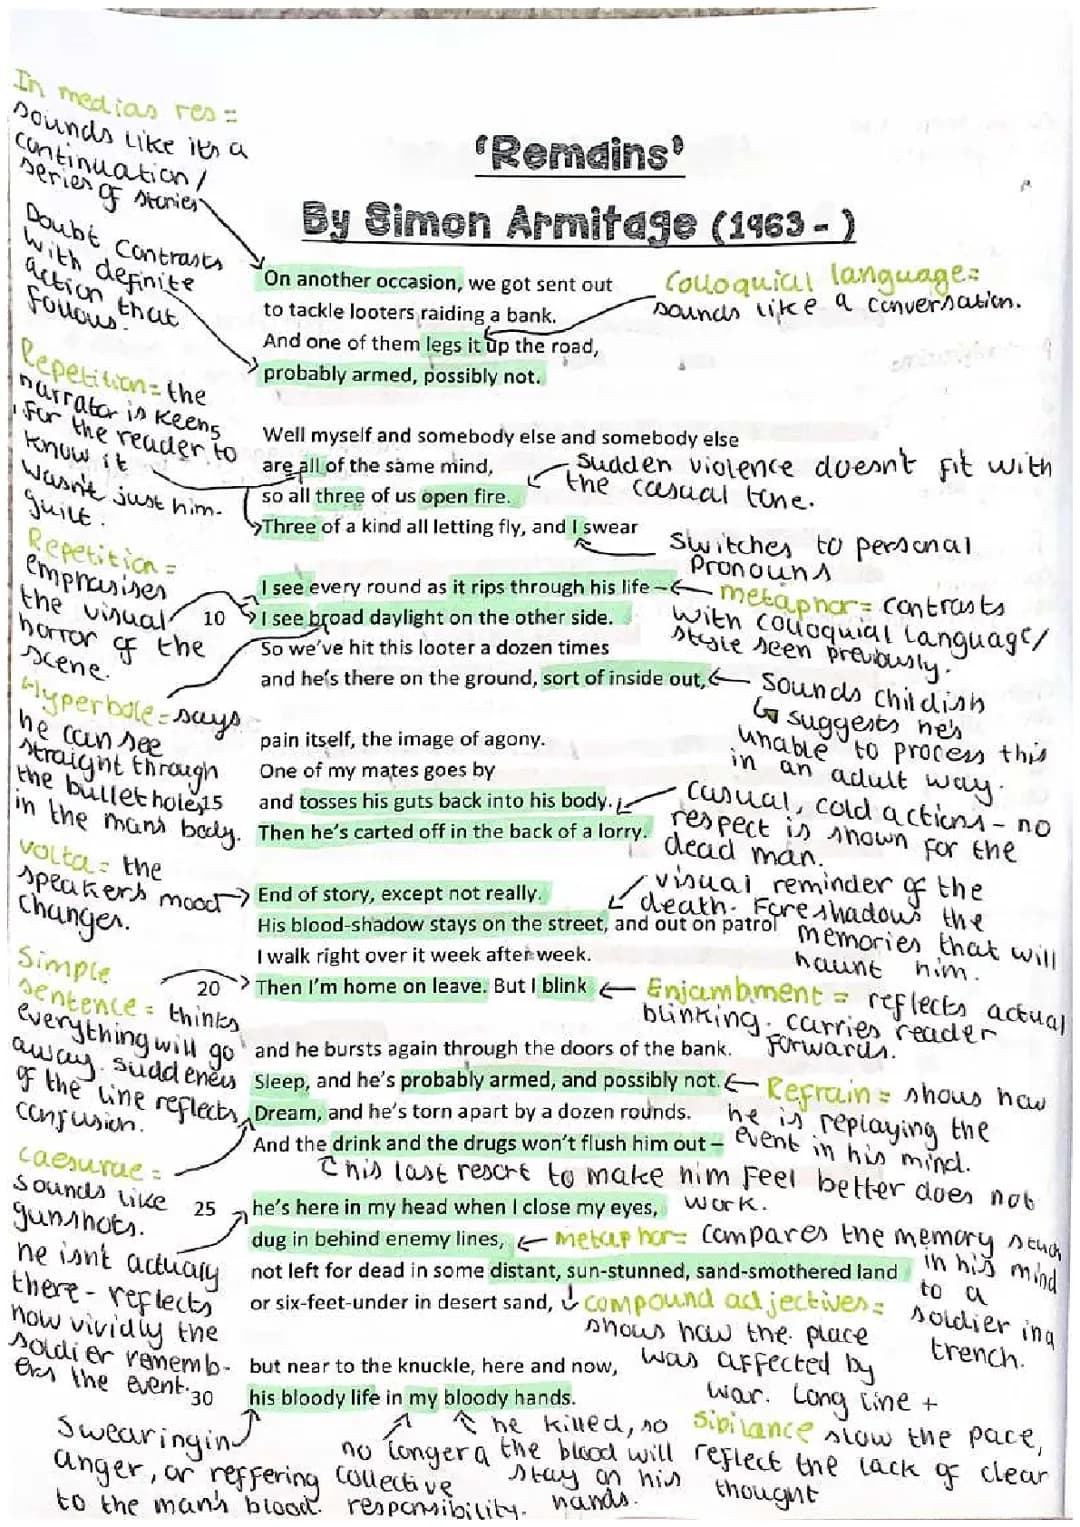 In medias res =
sounds like its a
continuation/
series of stories
Doubt contrasts
with definite
action that
follows.
Repetition = the
narrator is keens
for the reader to
know it
wasn't just him.
guilt.
Repetition =
emphasises
the visual
horror of the
scene.
Hyperbole = says
he can see
straight through
the bullet holes
in the mans body.
volta = the
speakers mood
changes.
Simple
sentence = thinks
everything will go
away. suddeness
of the line reflects
confusion.
caesurae =
sounds like
gunshots.
he isnt actually
there - reflects
how vividly the
soldier rememb-
ers the event.
'Remains'
By Simon Armitage (1963 - )
On another occasion, we got sent out
to tackle looters raiding a bank.
And one of them legs it up the road,
probably armed, possibly not.
Well myself and somebody else and somebody else
are all of the same mind,
so all three of us open fire.
Three of a kind all letting fly, and I swear
I see every round as it rips through his life –
10 I see broad daylight on the other side.
So we've hit this looter a dozen times
and he's there on the ground, sort of inside out,
pain itself, the image of agony.
One of my mates goes by
15 and tosses his guts back into his body.
Then he's carted off in the back of a lorry.
End of story, except not really.
His blood-shadow stays on the street, and out on patrol
I walk right over it week after week.
20 Then I'm home on leave. But I blink
and he bursts again through the doors of the bank.
Sleep, and he's probably armed, and possibly not.
Dream, and he's torn apart by a dozen rounds.
And the drink and the drugs won't flush him out –
this last resort to make him feel better does not
work.
25 he's here in my head when I close my eyes,
dug in behind enemy lines,
not left for dead in some distant, sun-stunned, sand-smothered land
or six-feet-under in desert sand,
but near to the knuckle, here and now,
30 his bloody life in my bloody hands.
Colloquial language=
sounds like a conversation.
Sudden violence doesn't fit with
the casual tone.
Switches to personal
pronouns
metaphor = contrasts
with colloquial language/
style seen previously.
Sounds childish
suggests he's
unable to process this
in an adult way.
casual, cold actions - no
respect is shown for the
dead man.
visual reminder of the
death. Foreshadows the
memories that will
haunt him.
Enjambment = reflects actual
blinking. carries reader
forwards.
Refrain = shows how
he is replaying the
event in his mind.
metaphor= compares the memory stuck
in his mind
to a
soldier in a
trench.
compound adjectives =
shows how the place
was affected by
war. Long line +
sibilance slow the pace,
reflect the lack of clear
thought
Swearing in
anger, or reffering
to the man's blood.
no longer a
collective
responsibility.
he killed, so
the blood will
stay on his
hands.